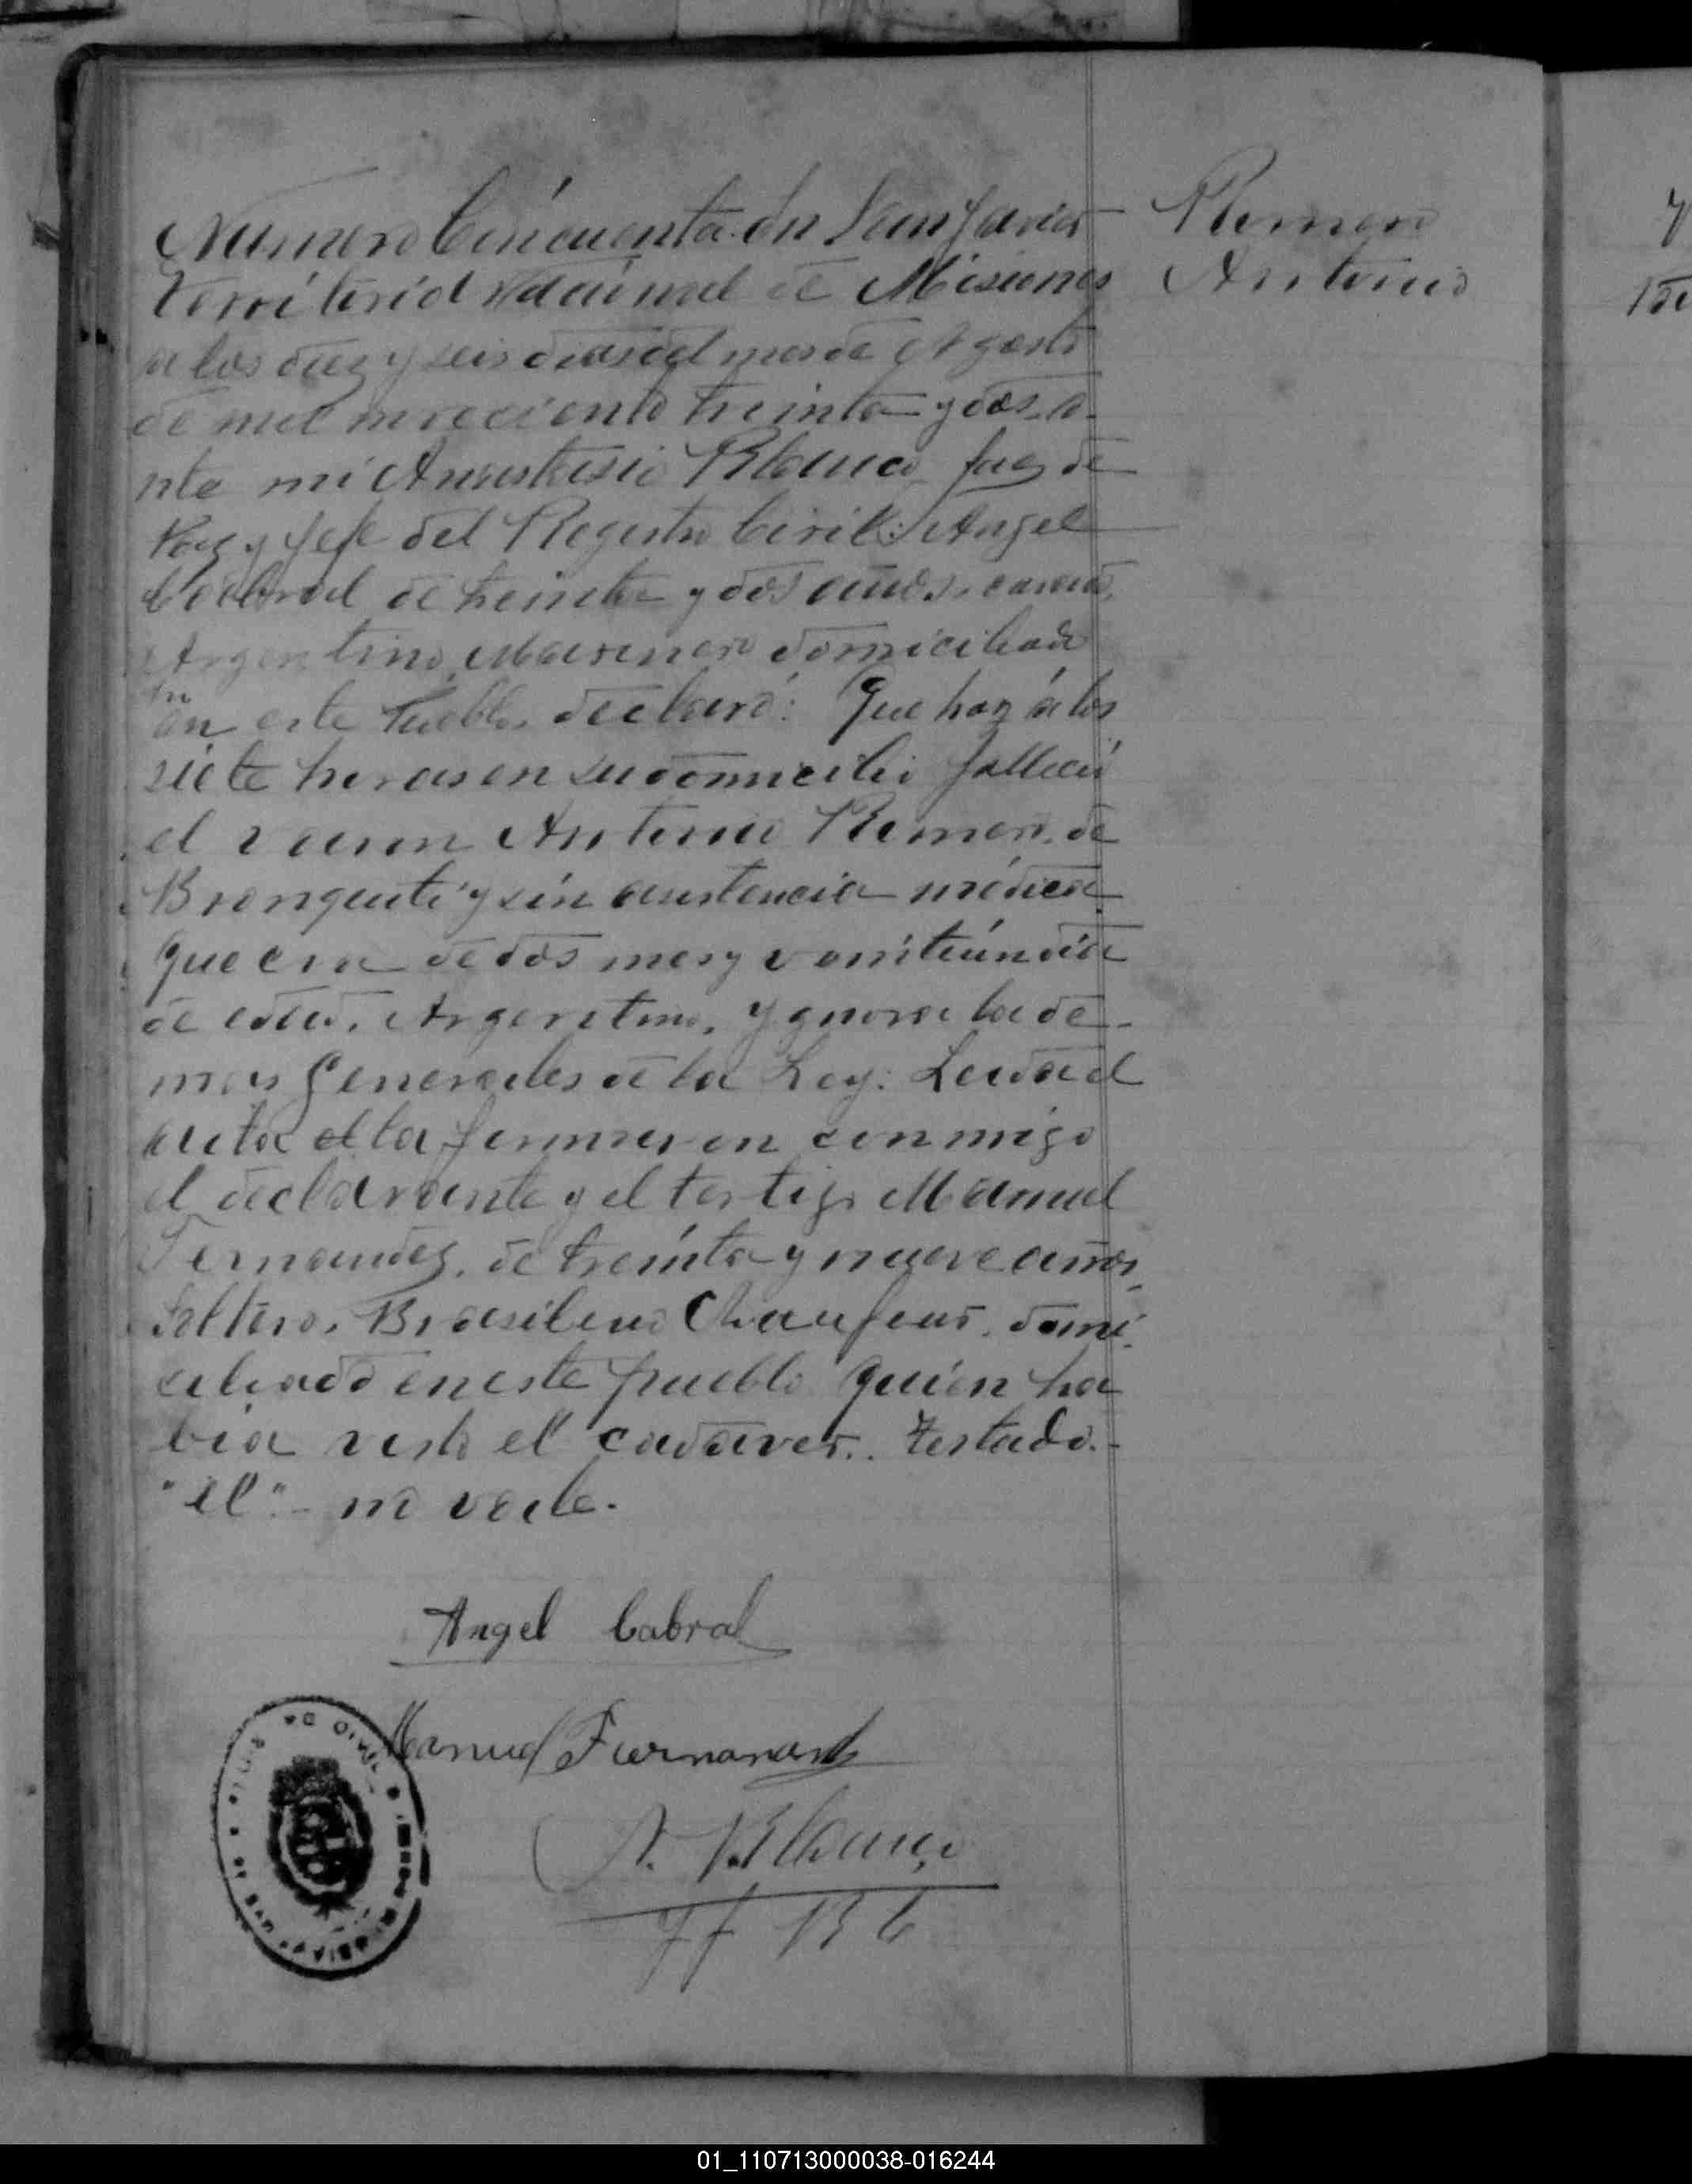 Numero Cincuenta. En San Javier
Territorio Nacional de Misiones
a los diez y seis dias del mes de Agosto
de mil noveciento treinta y dos. a-
nte mi Anastasio Blanco Juez de
Paz y Jefe del Registro Civil: Angel
Cabral de treinta y dos años, casado,
Argentino, Marinero domiciliado
en este Pueblo, declaró: Que hoy á las
siete horas en su domicilio falleció
el varon Antonio Romero, de
Bronquiti y sin asistencia médica
que era de dos mes y ventiún dia
de edad. Argentino, y gnora la de-
mas Generales de la Ley: Leida el
acta ella firmaron conmigo
el declarante y el testigo Manuel
Fernandez, de treinta y nueve años,
Soltero, Brasilero Chaufeur, domi-
ciliado en este pueblo quién ha
bia visto el cadaver.. Testado.-
"el".- no vale.
Romero
Antonio
Angel Cabral
Manuel Fernandez
A. Blanco
01_110713000038-016244